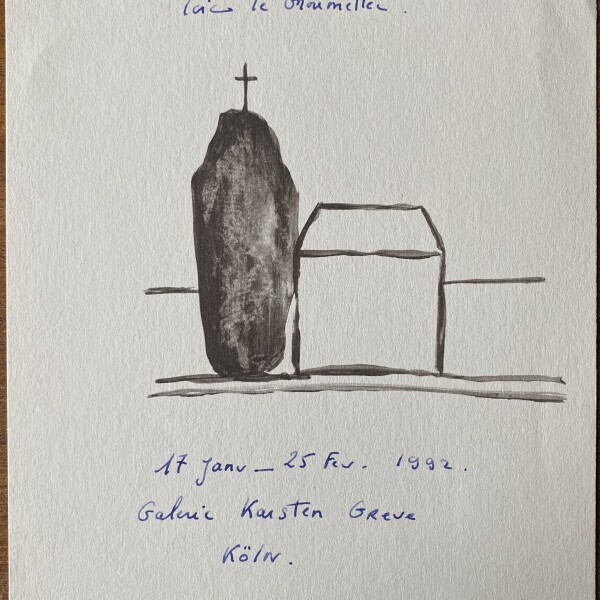 Loïc Le Groumellec.
17 Janv — 25 Fev. 1992.
Galerie Karsten Greve
Köln.